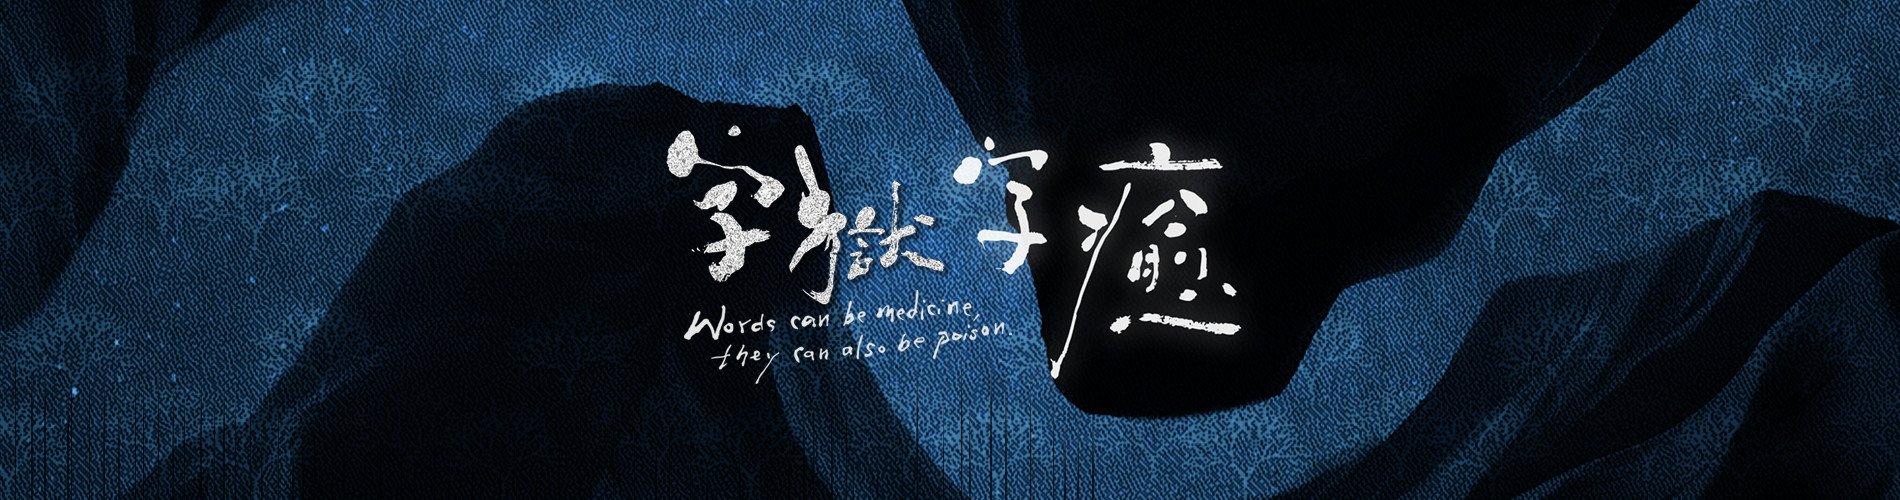 字獄字癒
Words can be medicine,
they can also be poison.